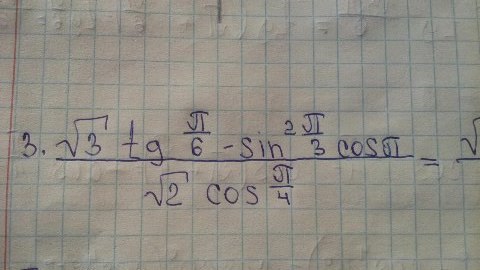 3. √3 tg π/6 - sin² π/3 cos π / √2 cos π/4 = √